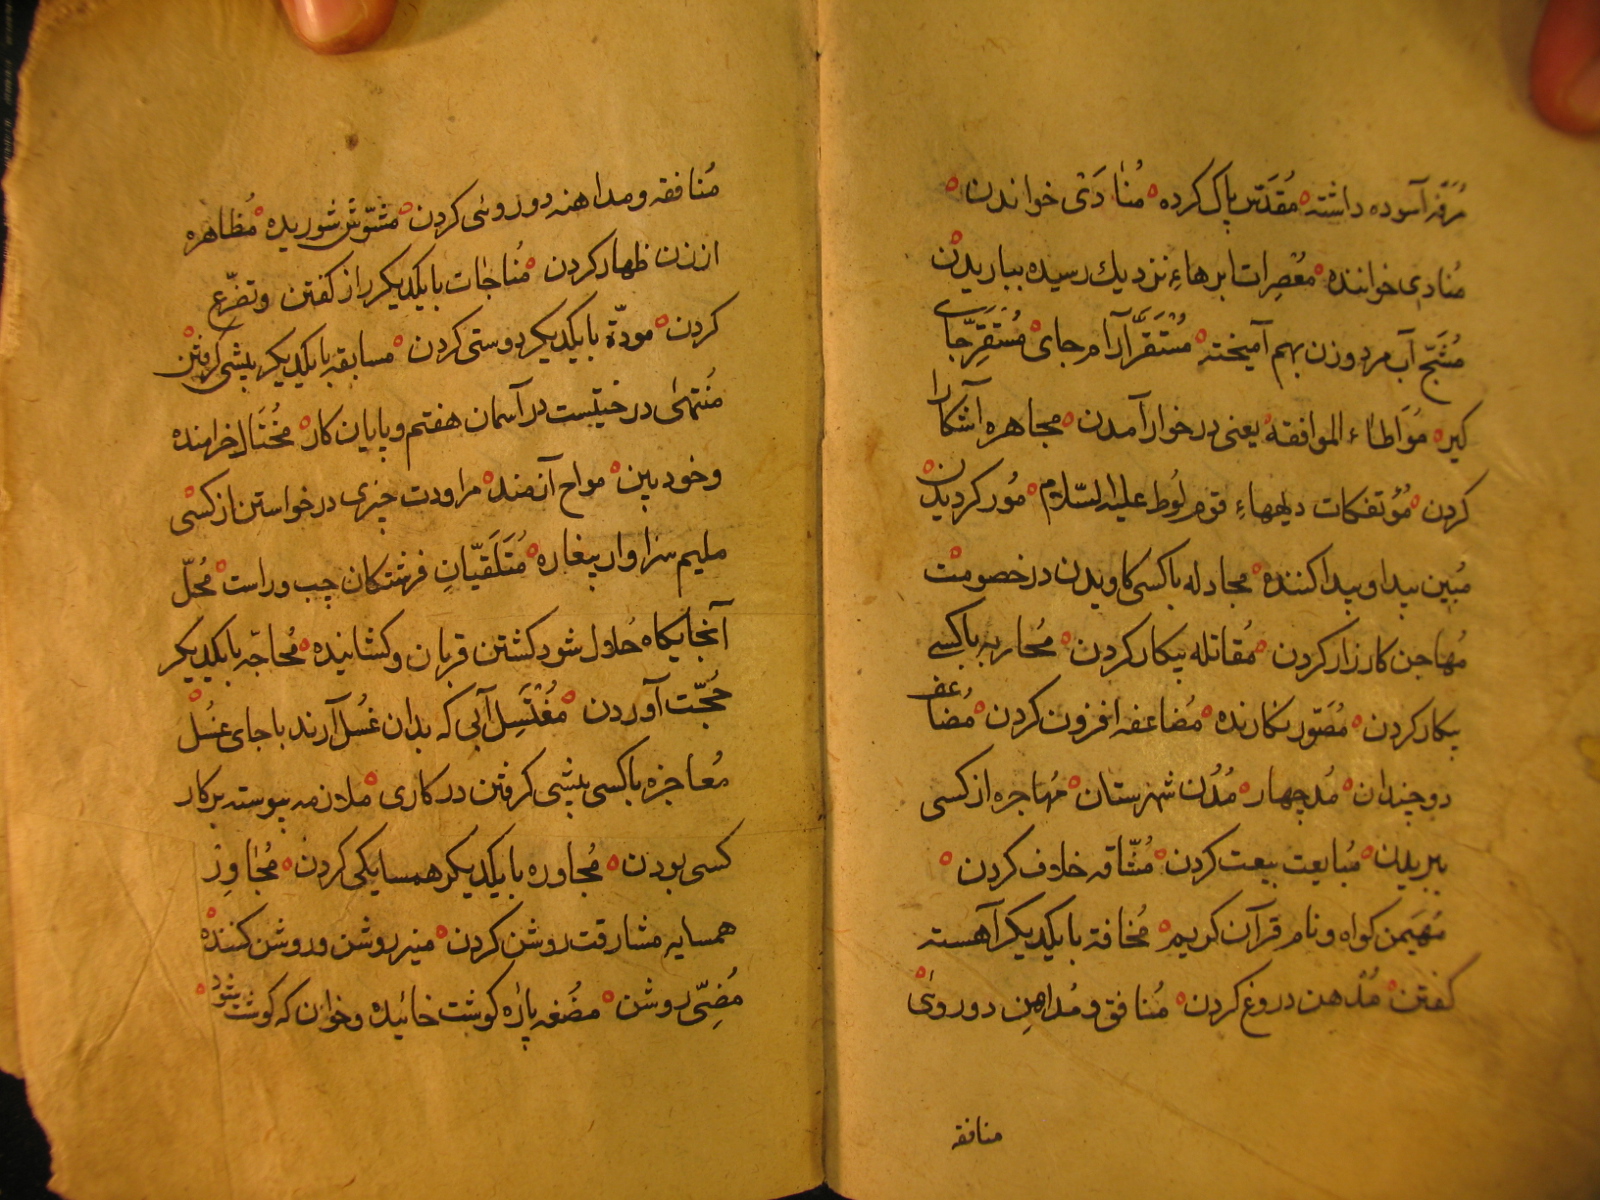 مُرَفّه آسوده داشته مُقَدّس پاک کرده مُنٰادَیٰ خواندن
مُنادی خواننده مُعْصِرات ابرهاءِ نزدیك رسیده بباریدن
مُثَجّ آب مرد وزن بهم آمیخته مُسْتَقَرّ آرام جای مُسْتَقِرّ جای
کیر مُوَاطاء الموافقة یعنی درخوار آمدن مجاهره آشکارا
کردن مُؤتفکات دیههاءِ قوم لُوط علیه السّلام مُور کردیدن
مُبین پیدا و پیدا کننده مجادله باکسی کاویدن در خصومت
کارزار کردن مُقاتله پیکار کردن مُحاربه باکسی
پیکار کردن مُصَوّر نکارنده مُضاعفه افزون کردن مُضاعف
دوچندان مُد چهار مُدُن شهرستان مُهاجره ازکسی
ببریدن مُبایعت بیعت کردن مُشّاقه خلاف کردن
مُهَیمن کواه و نام قرآن کریم مُخافته بایکدیکر آهسته
کفتن مُدْهن دروغ کردن مُنافق و مُداهِن دوروی
منافقه
مُنافقه و مداهنه دوروئی کردن مُشَوّش شوریده مُظاهره
از زن ظهار کردن مُناجٰات بایکدیکر راز کفتن وتضرّع
کردن مودّة بایکدیکر دوستی کردن مسابقه بایکدیکر پیشی کرفتن
مُنتهیٰ درختیست در آسمان هفتم و پایان کار مُختَال خرامنده
وخودبین مراودت چیزی درخواستن از کسی
ملیم سزاوار بیغاره مُتَلَقیّانِ فرشتکان چپ و راست مُحلّ
آنجایکاه حُلول شود کشتن قربان و کشانیده مُحاجّه بایکدیکر
حُجّت آوردن مُغْتَسِل آبی که بدان غُسل آرند باجای غُسْل
مُعاجزه باکسی پیشی کرفتن در کاری ملازمه پیوسته برکار
کسی بودن مُجاوره بایکدیکر همسایکی کردن مُجٰاوِر
همسایه مشارقت روشن کردن منیر روشن و روشن کننده
مُضِیّ روشن مضُغه پاره کوشت خائیده وخوان که کوشت شود